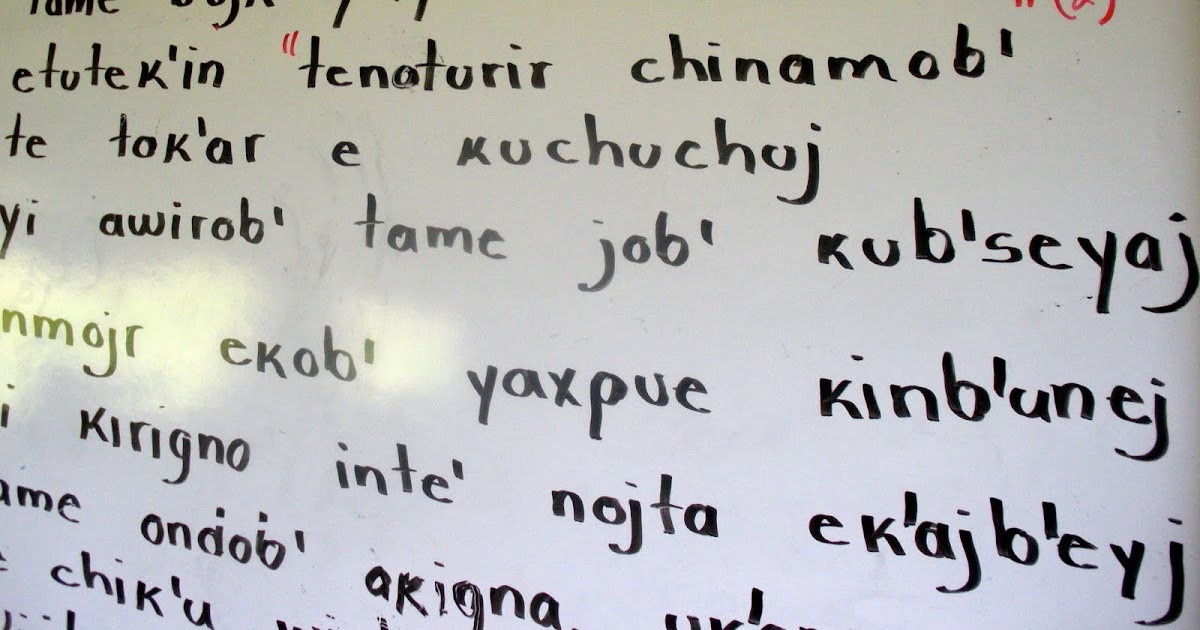 tame
etutek'in "tenoturir chinamob'
te tok'ar e kuchuchuj
yi awirob' tame job' kub'seyaj
nmojr ekob' yaxpue kinb'unej
i kirigno inte' nojta ek'ajb'eyj
ame ondob'
chik'u akigna